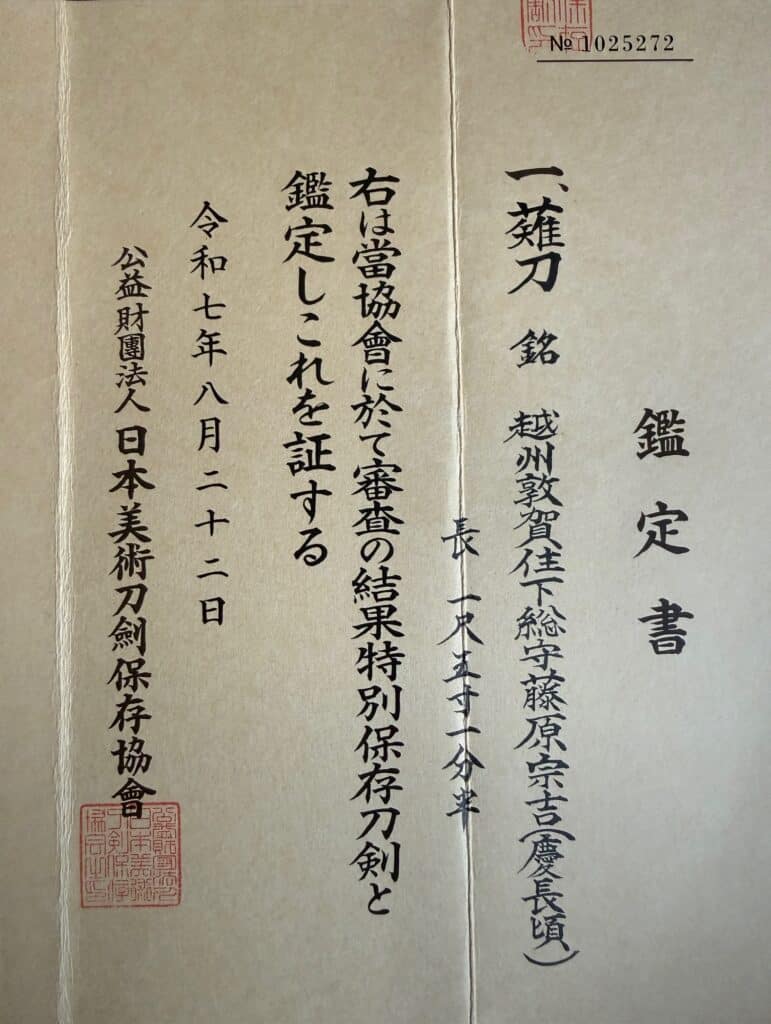 № 1025272
鑑定書
一、薙刀 銘 越州敦賀住下総守藤原宗吉(慶長頃)
長 一尺五寸一分半
右は當協會に於て審査の結果特別保存刀剣と
鑑定しこれを証する
令和七年八月二十二日
公益財團法人 日本美術刀劍保存協會